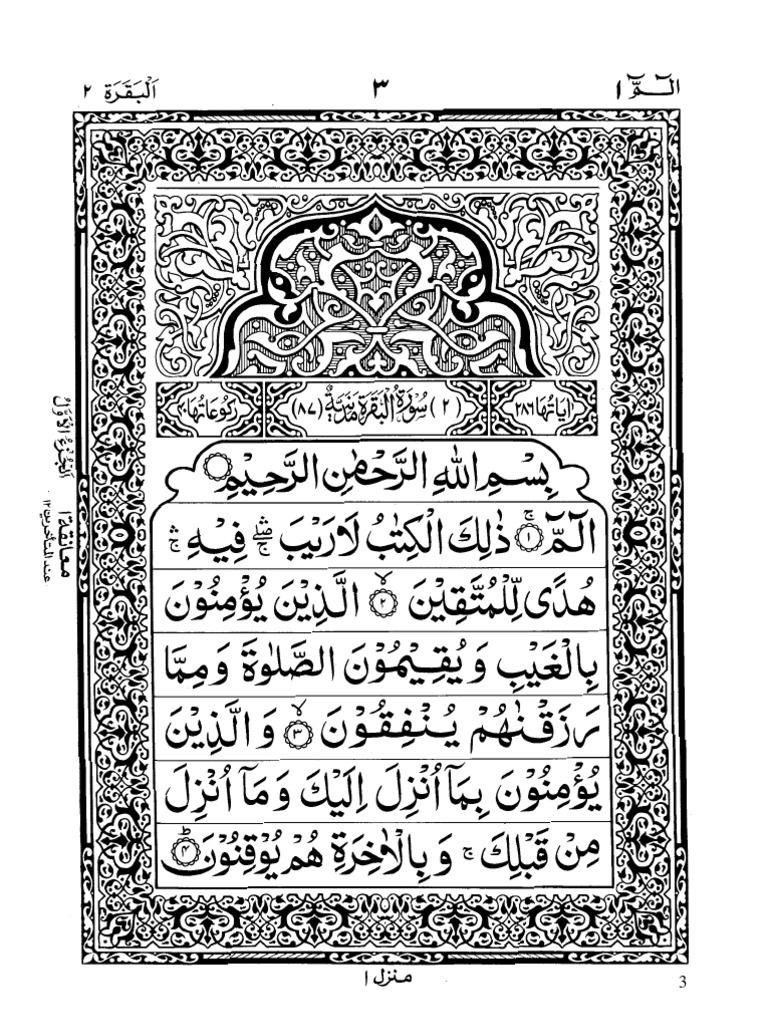 الٓـمّٓ ١
٣
اَلْبَقَرَة ٢
اٰيَاتُهَا ٢٨٦
(٢) سُوْرَةُ الْبَقَرَةِ مَدَنِيَّةٌ (٨٧)
رُكُوْعَاتُهَا ٤٠
بِسْمِ اللهِ الرَّحْمٰنِ الرَّحِيْمِ
الٓمّٓ ۚ ١ ذٰلِكَ الْكِتٰبُ لَا رَيْبَ ۛۖۚ فِيْهِ ۛۚ
هُدًى لِّلْمُتَّقِيْنَ ۙ ٢ الَّذِيْنَ يُؤْمِنُوْنَ
بِالْغَيْبِ وَيُقِيْمُوْنَ الصَّلٰوةَ وَمِمَّا
رَزَقْنٰهُمْ يُنْفِقُوْنَ ۙ ٣ وَالَّذِيْنَ
يُؤْمِنُوْنَ بِمَآ اُنْزِلَ اِلَيْكَ وَمَآ اُنْزِلَ
مِنْ قَبْلِكَ ۚ وَبِالْاٰخِرَةِ هُمْ يُوْقِنُوْنَ ؕ ٤
اَلْجُزْءُ الْاَوَّلُ
معانقة ١
عند المتأخرين ١٢
منزل ١
3